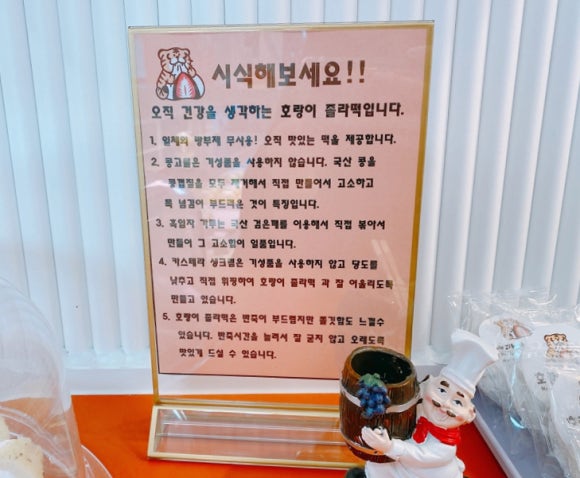 시식해보세요!!
오직 건강을 생각하는 호랑이 쫄라떡입니다.
1. 일체의 방부제 무사용! 오직 맛있는 떡을 제공합니다.
2. 콩고물은 기성품을 사용하지 않습니다. 국산 콩을
콩껍질을 모두 제거해서 직접 만들어서 고소하고
목 넘김이 부드러운 것이 특징입니다.
3. 흑임자 가루는 국산 검은깨를 이용해서 직접 볶아서
만들어 그 고소함이 일품입니다.
4. 카스테라 생크림은 기성품을 사용하지 않고 당도를
낮추고 직접 휘핑하여 호랑이 쫄라떡 과 잘 어울리도록
만들고 있습니다.
5. 호랑이 쫄라떡은 반죽이 부드럽지만 쫄깃함도 느낄수
있습니다. 반죽시간을 늘려서 잘 굳지 않고 오래도록
맛있게 드실 수 있습니다.